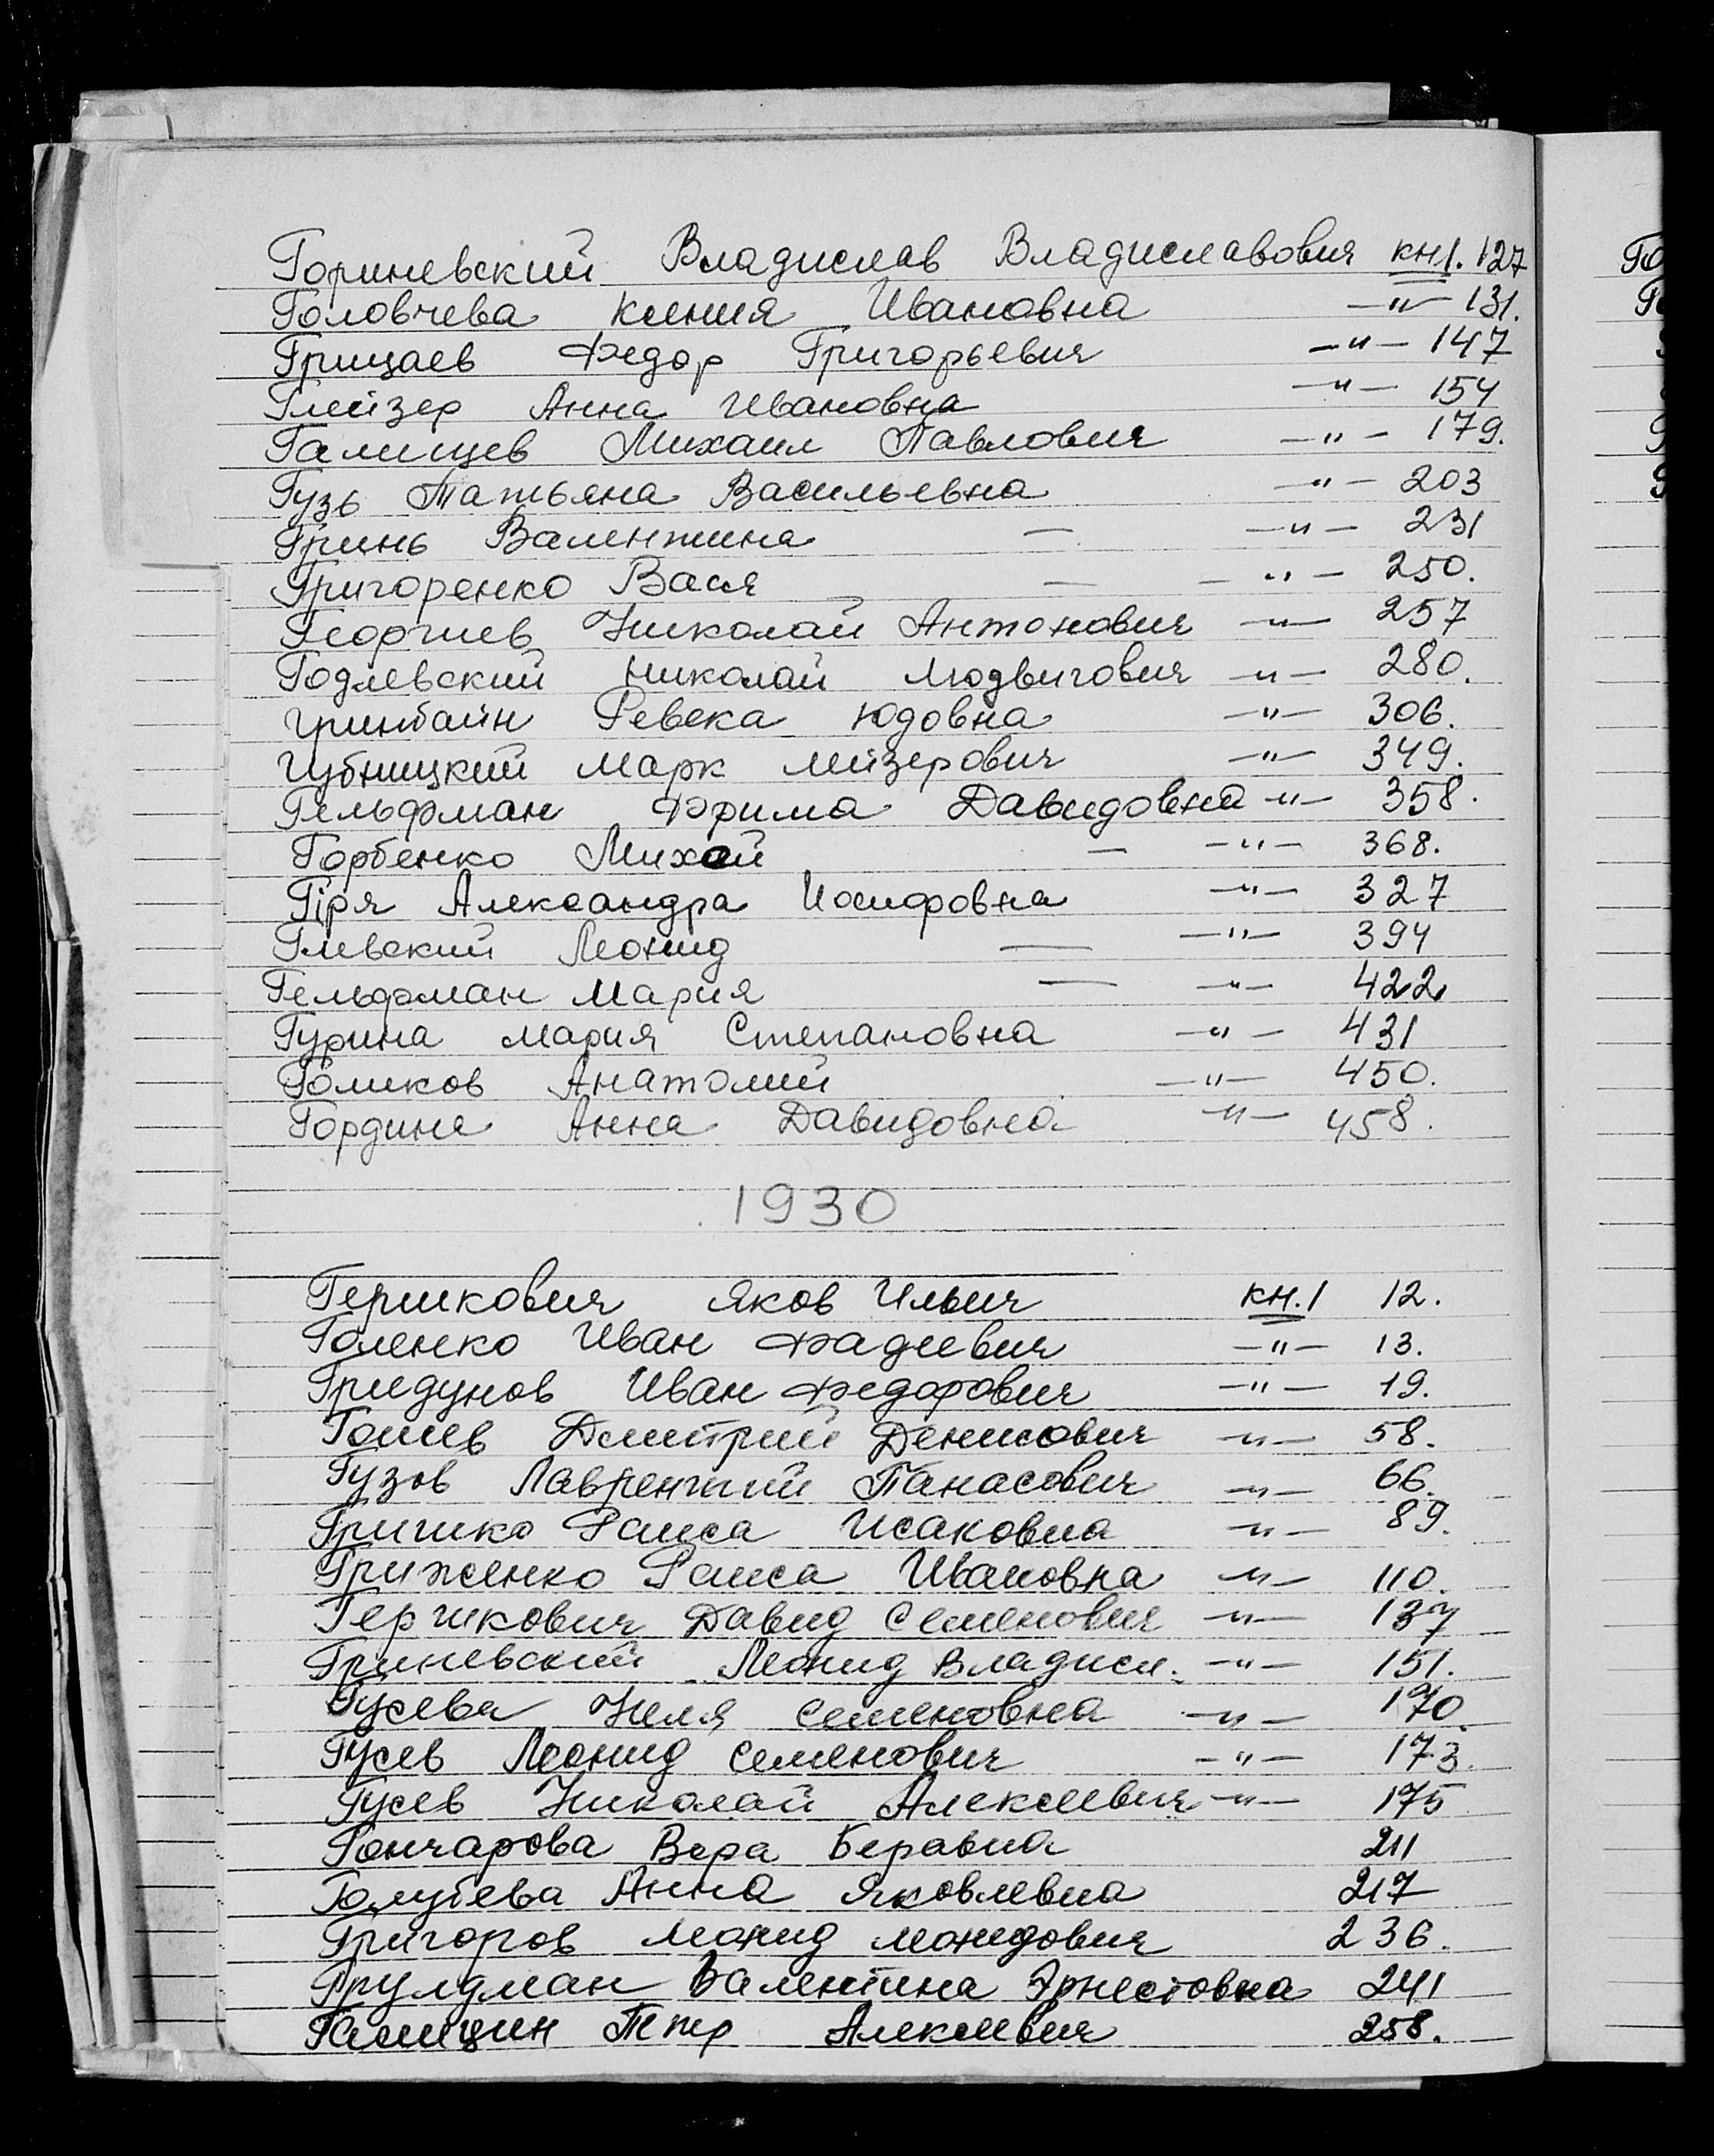 Гориневский Владислав Владиславович кн1. 127
Головчева Ксения Ивановна —"— 131.
Грицаев Федор Григорьевич —"— 147
Глейзер Анна Ивановна —"— 154
Галищев Михаил Павлович —"— 179.
Гузь Татьяна Васильевна —"— 203
Гринь Валентина — —"— 231
Григоренко Вася — —"— 250.
Георгиев Николай Антонович —"— 257
Годлевский Николай Людвигович —"— 280.
Гринбайн Ревека Юдовна —"— 306.
Губницкий Марк Лейзерович —"— 349.
Гельфман Фрима Давидовна —"— 358.
Горбенко Михай — —"— 368.
Гіря Александра Иосифовна —"— 327
Глевский Леонид — —"— 394
Гельфман Мария — —"— 422
Гурина Мария Степановна —"— 431
Голиков Анатолий —"— 450.
Гордина Анна Давидовна —"— 458.
1930
Гершкович Яков Ильич кн.1 12.
Голенко Иван Фадеевич —"— 13.
Гридунов Иван Федорович —"— 19.
Гошев Дмитрий Денисович —"— 58.
Гузов Лаврентий Панасович —"— 66.
Гришко Раиса Исаковна —"— 89.
Гриженко Раиса Ивановна —"— 110.
Гершкович Давид Семенович —"— 137
Гриневский Леонид Владисл. —"— 151.
Гусева Неля Семеновна —"— 170.
Гусев Леонид Семенович —"— 173.
Гусев Николай Алексеевич —"— 175
Гончарова Вера Беровна 211
Голубева Анна Яковлевна 217
Григоров Леонид Леонидович 236.
Грулдман Валентина Эрнестовна 241
Галицин Петр Алексеевич 258.